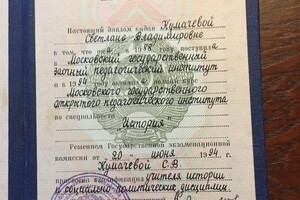 Настоящий диплом выдан Кумачевой
Светлане Владимировне
в том, что она в 1988 году поступила
в Московский государственный
заочный педагогический институт
и в 1994 году окончила полный курс
Московского государственного
открытого педагогического института
по специальности
История
Решением Государственной экзаменационной
комиссии от 20 июня 1994 г.
Кумачевой С.В.
присвоена квалификация учителя истории
и социально-политических дисциплин